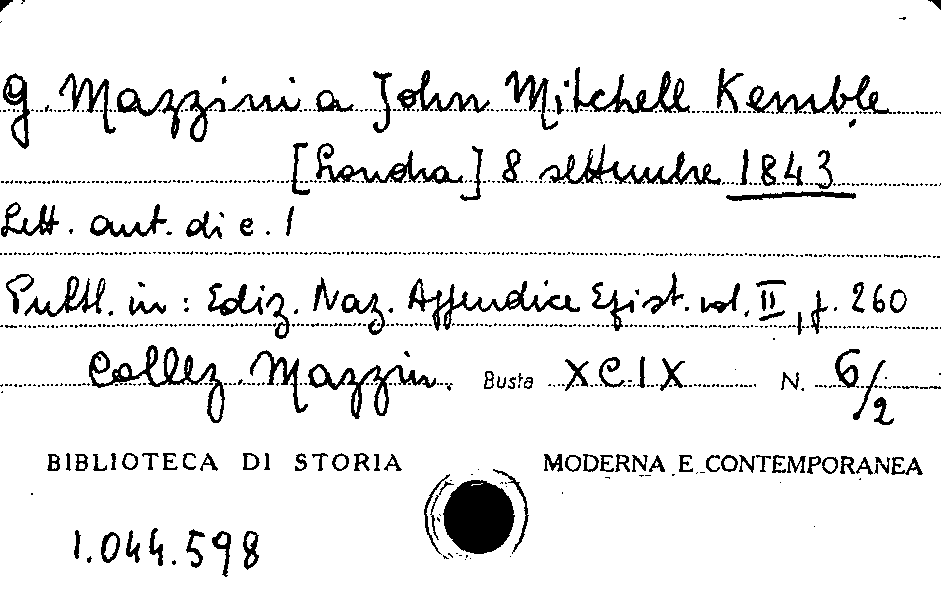 G. Mazzini a John Mitchell Kemble
[Londra] 8 settembre 1843
Lett. aut. di c. 1
Pubbl. in: Ediz. Naz. Appendice Epist. vol. II, p. 260
Collez. Mazzin. Busta XCIX N. 6/2
BIBLIOTECA DI STORIA MODERNA E CONTEMPORANEA
1.044.598